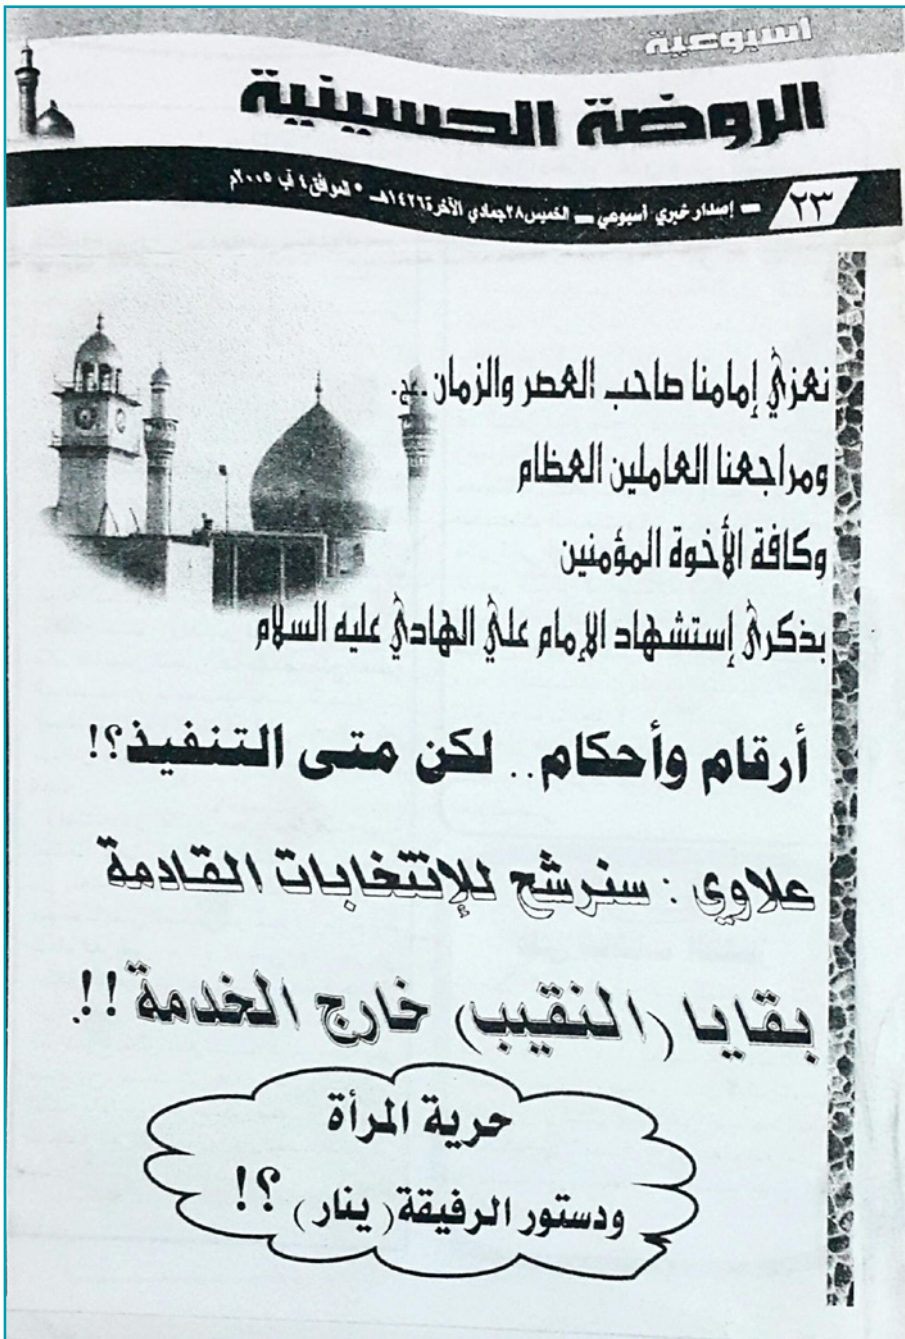 أسبوعية
الروضة الحسينية
٢٣ ـ إصدار خبري أسبوعي ـ الخميس ٢٨ جمادي الآخرة ١٤٢٦هـ * الموافق ٤ آب ٢٠٠٥م
نعزي إمامنا صاحب العصر والزمان ـ عج ـ
ومراجعنا العاملين العظام
وكافة الأخوة المؤمنين
بذكرى إستشهاد الإمام علي الهادي عليه السلام
أرقام وأحكام .. لكن متى التنفيذ؟!
علاوي : سنرشح للإنتخابات القادمة
بقايا (النقيب) خارج الخدمة !!
حرية المرأة
ودستور الرفيقة ( ينار ) ؟!